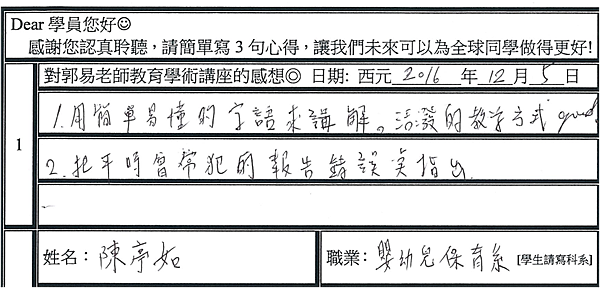 Dear 學員您好☺
感謝您認真聆聽，請簡單寫 3 句心得，讓我們未來可以為全球同學做得更好!
1
對郭易老師教育學術講座的感想◎ 日期: 西元 2016 年 12 月 5 日
1.用簡單易懂的字語來講解。活潑的教學方式 good
2.把平時會常犯的報告錯誤指出
姓名：陳亭如
職業：嬰幼兒保育系 [學生請寫科系]